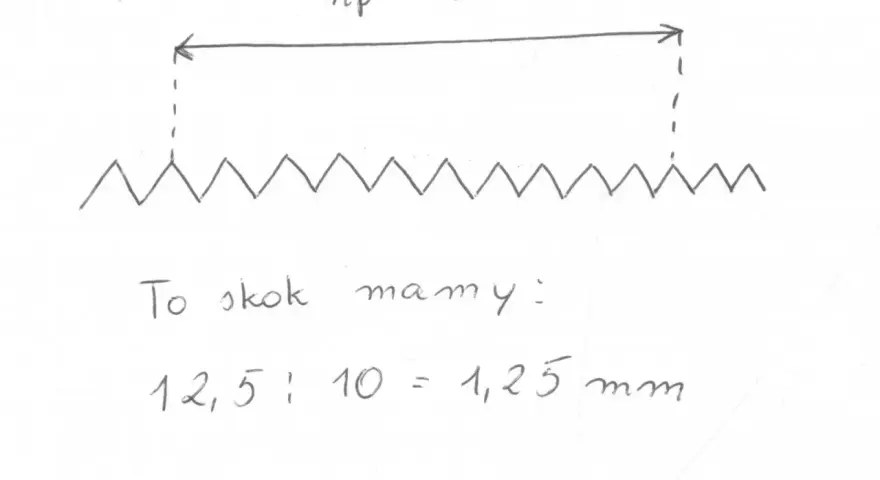 np
To skok mamy:
12,5 : 10 = 1,25 mm